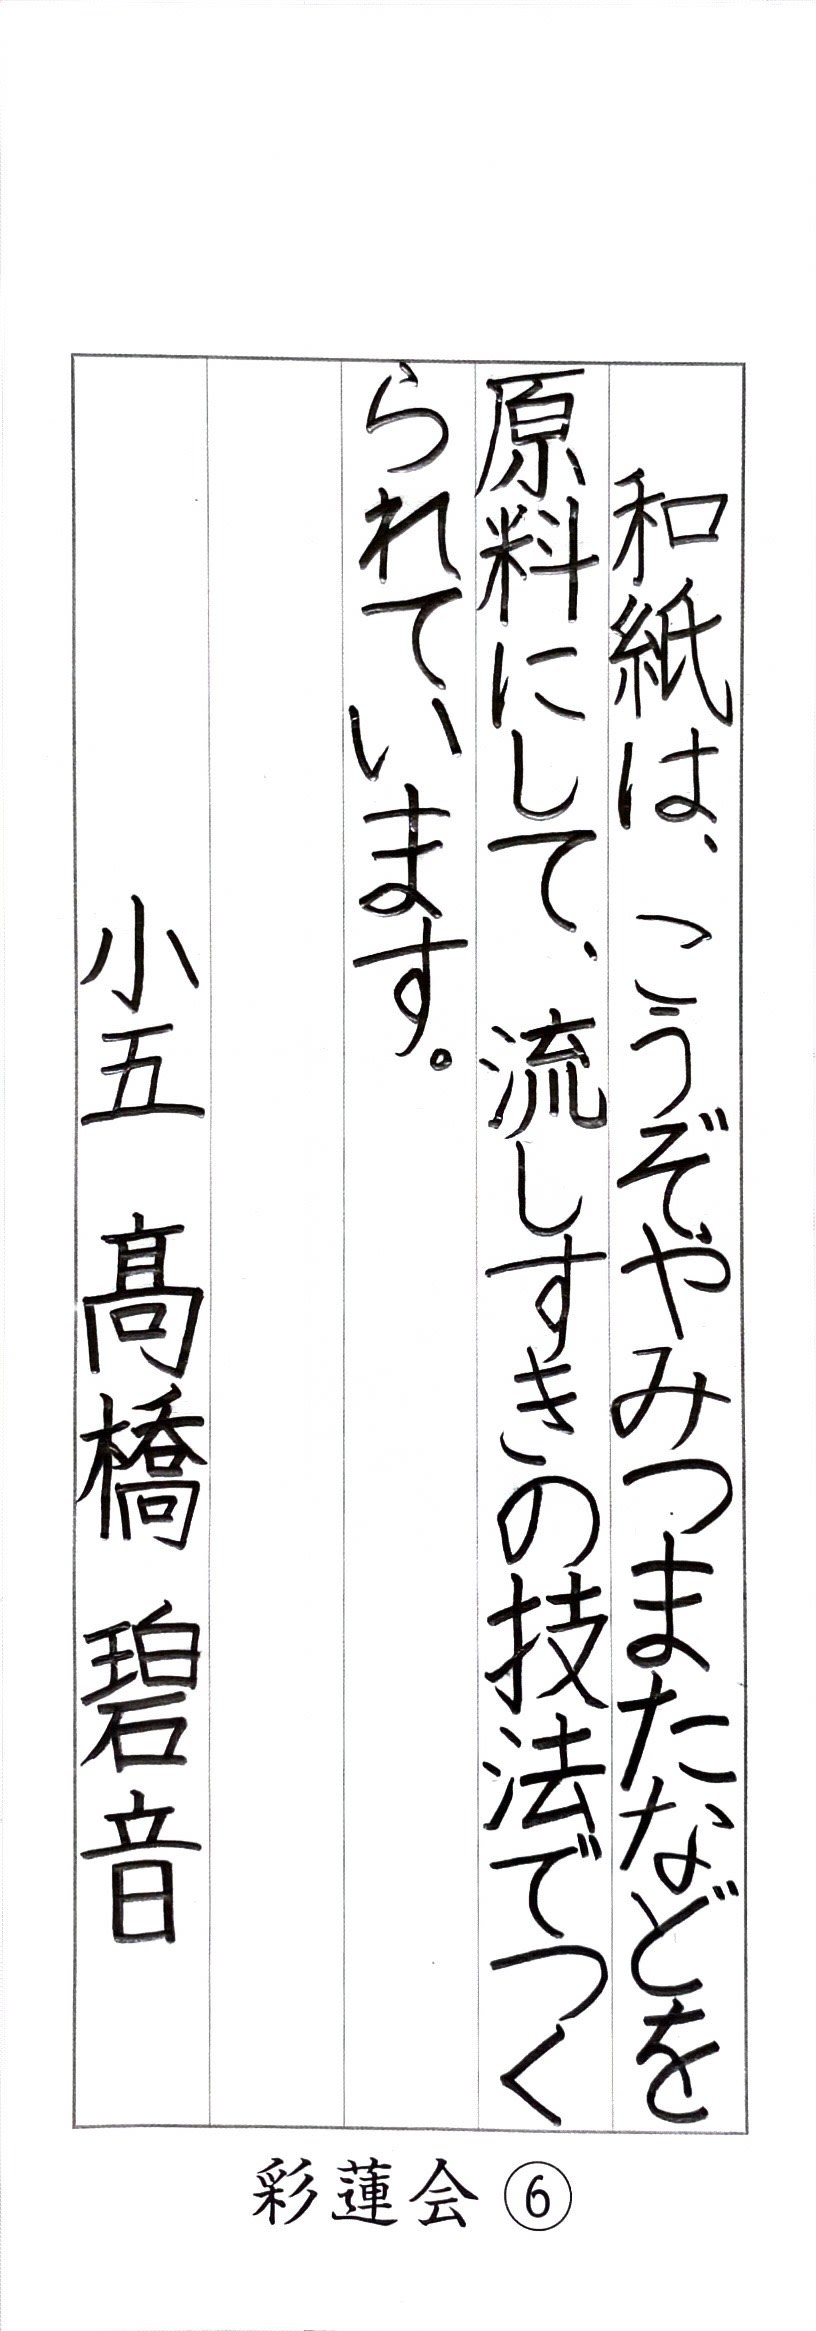 和紙は、こうぞやみつまたなどを
原料にして、流しすきの技法でつく
られています。
小五 髙橋 碧音
彩蓮会 ⑥